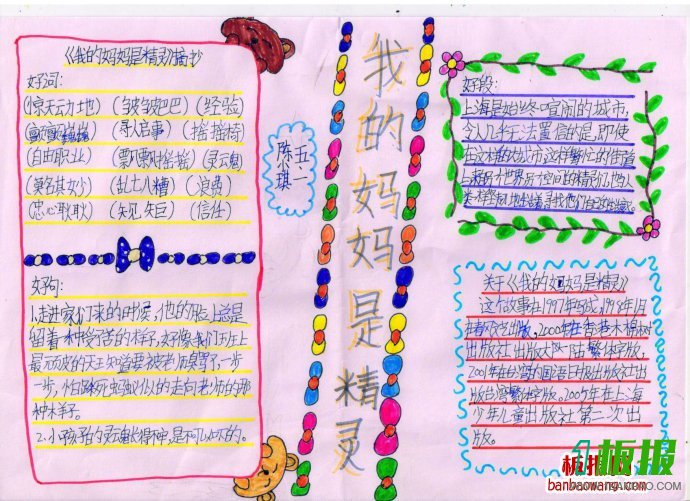 《我的妈妈是精灵》摘抄
好词:
(惊天动地) (皱皱巴巴) (经验)
(寻人启事) (摇摇椅)
(自由职业) (飘飘摇摇) (灵魂)
(莫名其妙) (乱七八糟) (浪费)
(忠心耿耿) (规规矩矩) (信任)
好句:
1.走进家们来的时侯,他的脸上总是
留着一种受苦的样子,好像我们班上
最顽皮的天王知道要被老师臭骂了,一步
一步,怕踩死蚂蚁似的走向老师的那
种样子。
2.小孩子的灵魂精神,是不可以坏的。
五二
陈小琪
我的妈妈是精灵
好段:
上海是始终喧闹的城市,
令人几乎无法置信的是,即使
在这样的城市这样繁忙的街道
上,来另外世界另外空间的精灵们也从
关于《我的妈妈是精灵》
这个故事由1997年写成,1998年1月
在春风文艺出版,2000年在香港木棉树
出版社出版大陆繁体字版,
2001年在台湾的国语日报出版社出
版台湾繁体字版。2005年在上海
少年儿童出版社第二次出
版。
板报网
banbaowang.com
板报